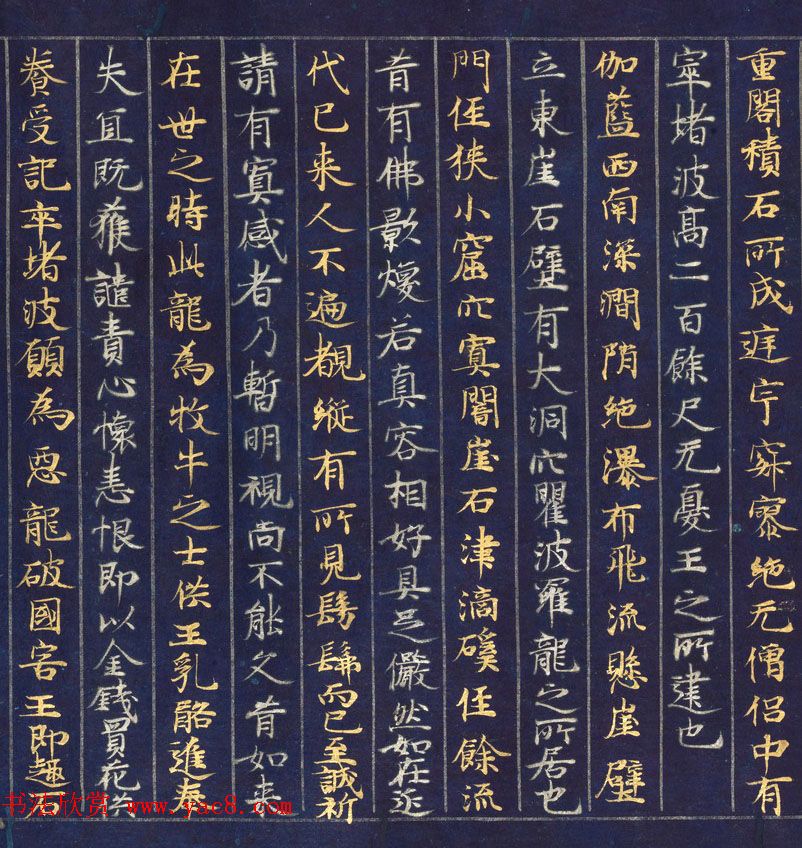 重閣積石所成遅宁寂寥絶无僧侶中有
窣堵波髙二百餘尺无憂王之所建也
伽藍西南深澗陗絶瀑布飛流懸崖壁
立東崖石壁有大洞穴瞿波羅龍之所居也
門侄狹小窟穴冥闇崖石津滴磎侄餘流
昔有佛影煥若真容相好具足儼然如在近
代已来人不遍覩縦有所見髣髴而已至誠祈
請有冥感者乃暫明視尚不能久昔如来
在世之時此龍為牧牛之士供王乳酪進奉
失冝既獲譴責心懐恚恨即以金錢買花供
養受記窣堵波願為惡龍破國害王即趣
书法欣赏 www.yac8.com